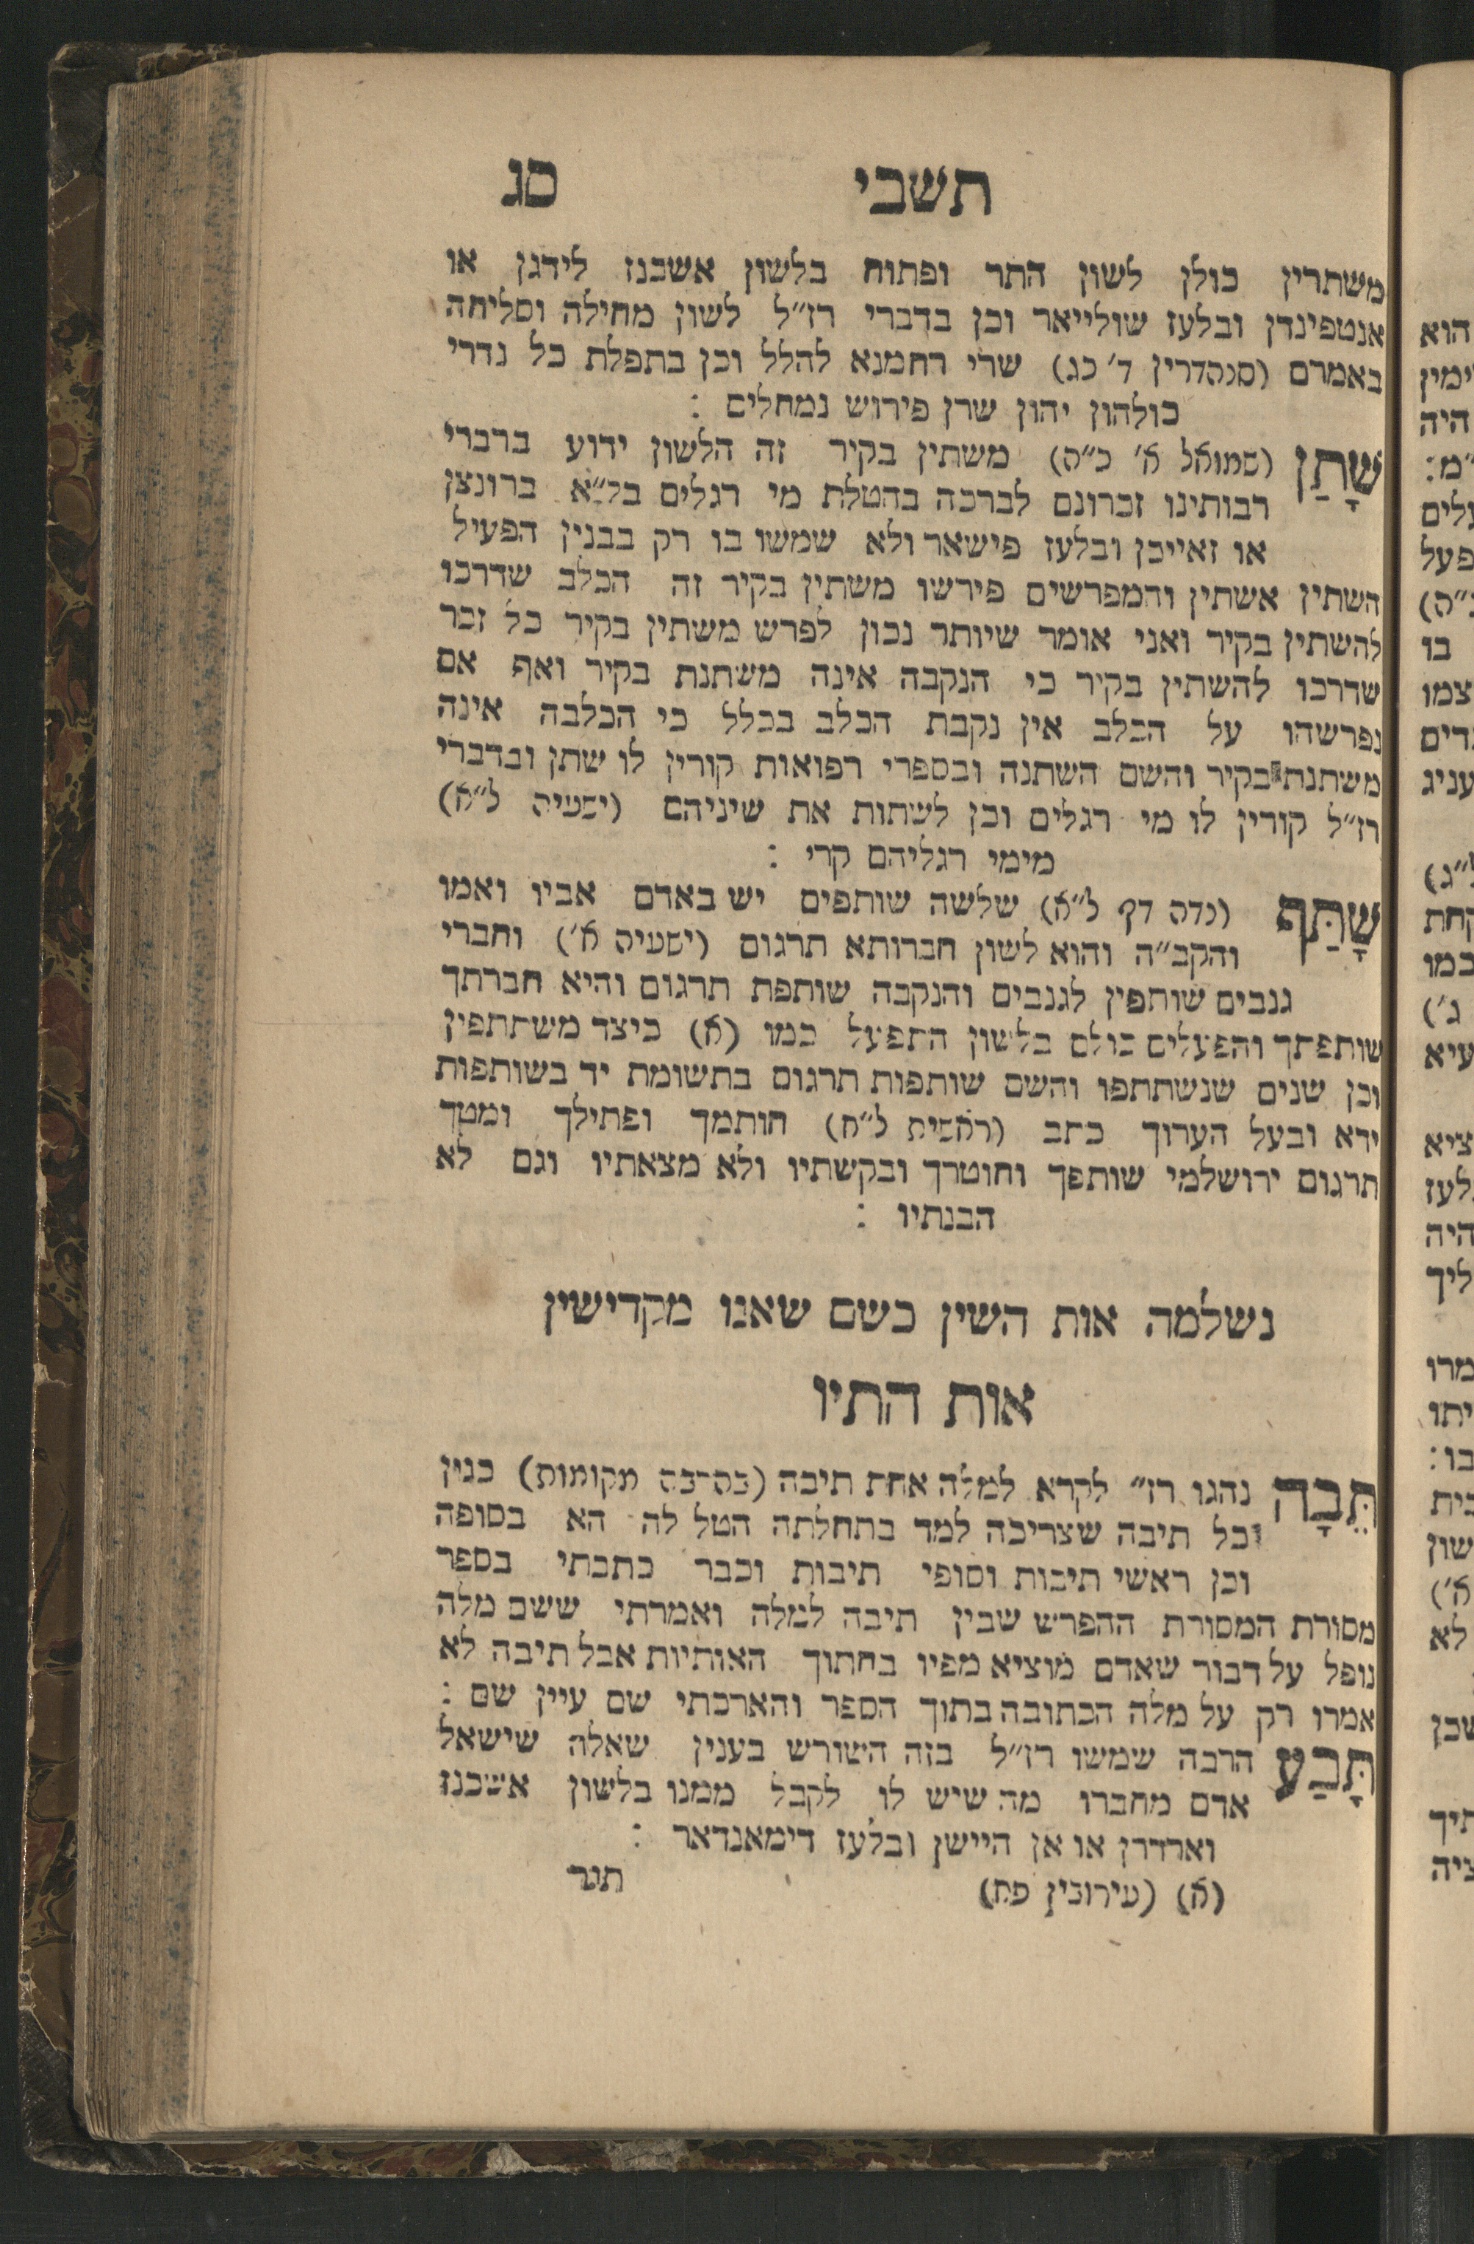 תשבי סג
משתרין כולן לשון התר ופתוח בלשון אשכנז לידגן או
אנטפינדן ובלעז שולייאר וכן בדברי רז״ל לשון מחילה וסליחה
באמרם (סנהדרין ד׳ כג) שרי רחמנא להלל וכן בתפלת כל נדרי
כולהון יהון שרן פירוש נמחלים :
שָׁתַן (שמואל א׳ כ״ה) משתין בקיר זה הלשון ידוע ברברי
רבותינו זכרונם לברכה בהטלת מי רגלים בל״א ברונצן
או זאייכן ובלעז פישאר ולא שמשו בו רק בבנין הפעיל
השתין אשתין והמפרשים פירשו משתין בקיר זה הכלב שדרכו
להשתין בקיר ואני אומר שיותר נכון לפרש משתין בקיר כל זכר
שדרכו להשתין בקיר כי הנקבה אינה משתנת בקיר ואף אם
נפרשהו על הכלב אין נקבת הכלב בכלל כי הכלבה אינה
משתנת בקיר והשם השתנה ובספרי רפואות קורין לו שתן ובדברי
רז״ל קורין לו מי רגלים וכן לשתות את שיניהם (ישעיה ל״א)
מימי רגליהם קרי :
שָׁתַּף (נדה דף ל״א) שלשה שותפים יש באדם אביו ואמו
והקב״ה והוא לשון חברותא תרגום (ישעיה א׳) וחברי
גנבים שותפין לגנבים והנקבה שותפת תרגום והיא חברתך
שותפתך והפעלים כולם בלשון התפעל כמו (א) כיצד משתתפין
וכן שנים שנשתתפו והשם שותפות תרגום בתשומת יד בשותפות
ידא ובעל הערוך כתב (ראשית ל״ח) חותמך ופתילך ומטך
תרגום ירושלמי שותפך וחוטרך ובקשתיו ולא מצאתיו וגם לא
הבנתיו :
נשלמה אות השין כשם שאנו מקדישין
אות התיו
תֵּבָה נהגו רז״ לקרא למלה אחת תיבה (בהרבה מקומות) כגין
וכל תיבה שצריכה למד בתחלתה הטל לה הא בסופה
וכן ראשי תיבות וסופי תיבות וכבר כתבתי בספר
מסורת המסורת ההפרש שבין תיבה למלה ואמרתי ששם מלה
נופל על דבור שאדם מוציא מפיו בחתוך האותיות אבל תיבה לא
אמרו רק על מלה הכתובה בתוך הספר והארכתי שם עיין שם :
תָּבַע הרבה שמשו רז״ל בזה השורש בענין שאלה שישאל
אדם מחברו מה שיש לו לקבל ממנו בלשון אשכנז
וארדרן או אן היישן ובלעז דימאנדאר :
(א) (עירובין פח) תגר
הוא
היה
עלים
פעל
בו
צמו
קחת
כמו
ג׳)
עיא
ציא
היה
ליך
מרו
יתו
בו:
בית
שון
א׳)
לא